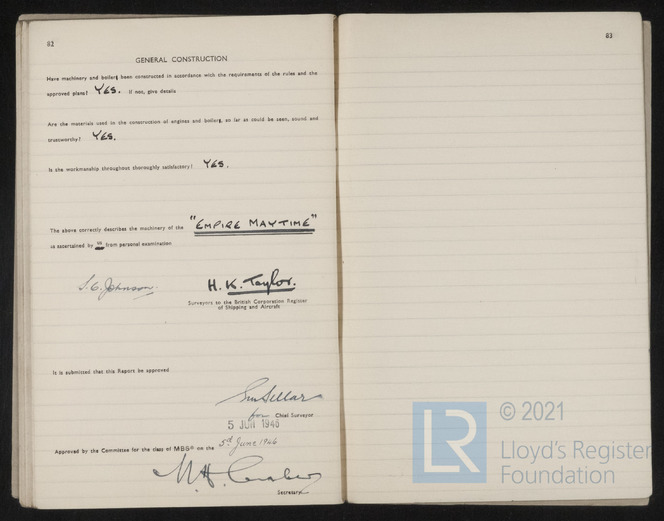 82
GENERAL CONSTRUCTION
Have machinery and boilers been constructed in accordance with the requirements of the rules and the
approved plans? YES. If not, give details
Are the materials used in the construction of engines and boilers, so far as could be seen, sound and
trustworthy? YES.
Is the workmanship throughout thoroughly satisfactory? YES.
The above correctly describes the machinery of the "EMPIRE MAYTIME"
as ascertained by us from personal examination
Johnson. H. K. Taylor.
Surveyors to the British Corporation Register
of Shipping and Aircraft
It is submitted that this Report be approved
Sellar
for Chief Surveyor
5 JUN 1946
Approved by the Committee for the class of MBS* on the 5th June 1946
Secretary
83
LR
© 2021
Lloyd's Register
Foundation